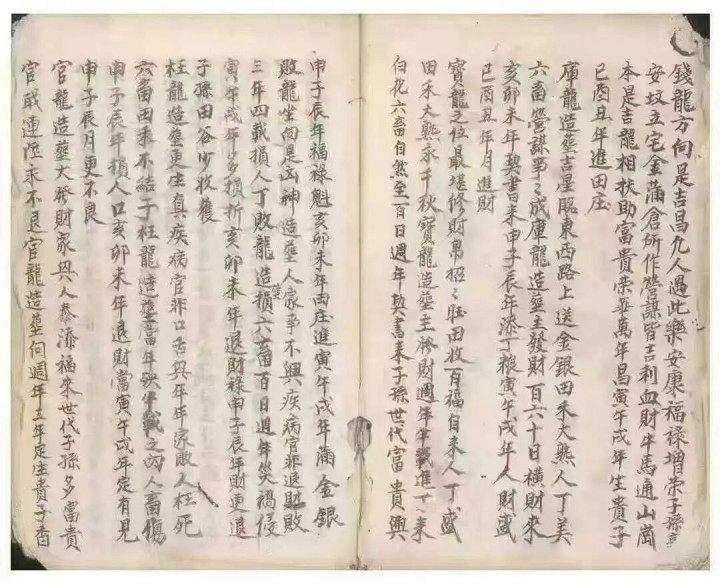 錢龍方向是吉昌凢人遇此樂安康福祿增荣子孫
安坟立宅金滿倉所作營謀皆吉利血財牛馬通山崗
本是吉龍相扶助富貴荣華萬年昌寅午戌年生貴子
巳酉丑年進田庄
庫龍造塟吉星臨東西路上送金銀田禾大熟人丁美
六畜營謀事〻成庫龍造塟主發財百六十日横財來
亥卯未年契書來申子辰年添丁粮寅午戌年人財盛
巳酉丑年月進財
寳龍之位最堪修財帛招〻旺田收百福自来人丁盛
田禾大熟永千秋寳龍造塟主發財週年半載進丁来
白花六畜自然至一百日週年契書来子孫世代富貴興
申子辰年福禄魁亥卯未年田庄進寅午戌年滿金銀
敗龍坐向是凶神造塟人家事不興疾病官非退財敗
三年四載損人丁敗龍造損六畜一百日週年災禍侵
寅午戌年多損折亥卯未年退財祿申子辰年財更退
子孫田谷少收獲
枉龍造塟更生真疾病官非口舌興年年家敗人枉死
六畜田禾不结子枉龍造塟當年殃半載之内人畜傷
申子辰年損人口亥卯未年退財當寅午戌年定有見
申子辰月更不良
官龍造塟大發財家興人泰添福來世代子孫多富貴
官职連陞永不退官龍造塟向週年三年定生貴子